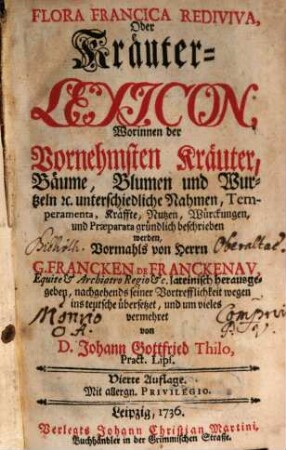 FLORA FRANCICA REDIVIVA,
Oder
Kräuter-
LEXICON,
Worinnen der
Vornehmsten Kräuter,
Bäume, Blumen und Wur-
tzeln ꝛc. unterschiedliche Nahmen, Tem-
peramenta, Kräffte, Nutzen, Würckungen,
und Præparata gründlich beschrieben
werden,
Vormahls von Herrn
G. FRANCKEN DE FRANCKENAV,
Equite & Archiatro Regio &c. lateinisch herausge-
geben, nachgehends seiner Vortrefflichkeit wegen
ins teutsche übersetzet, und um vieles
vermehret
von
D. Johann Gottfried Thilo,
Pract. Lips.
Vierte Auflage.
Mit allergn. PRIVILEGIO.
Leipzig, 1736.
Verlegts Johann Christian Martini,
Buchhändler in der Grimmischen Strasse.